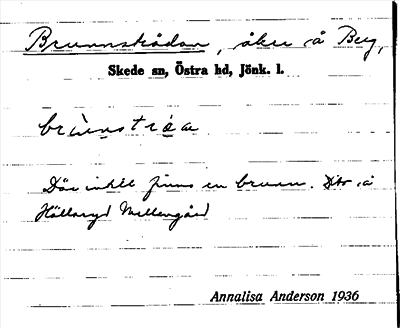 Brunnsträdan, åker å Berg,
Skede sn, Östra hd, Jönk. l.
brùnnstráa
Där intill finns en brunn. Dito å
Hällaryd Mellangård
Annalisa Anderson 1936